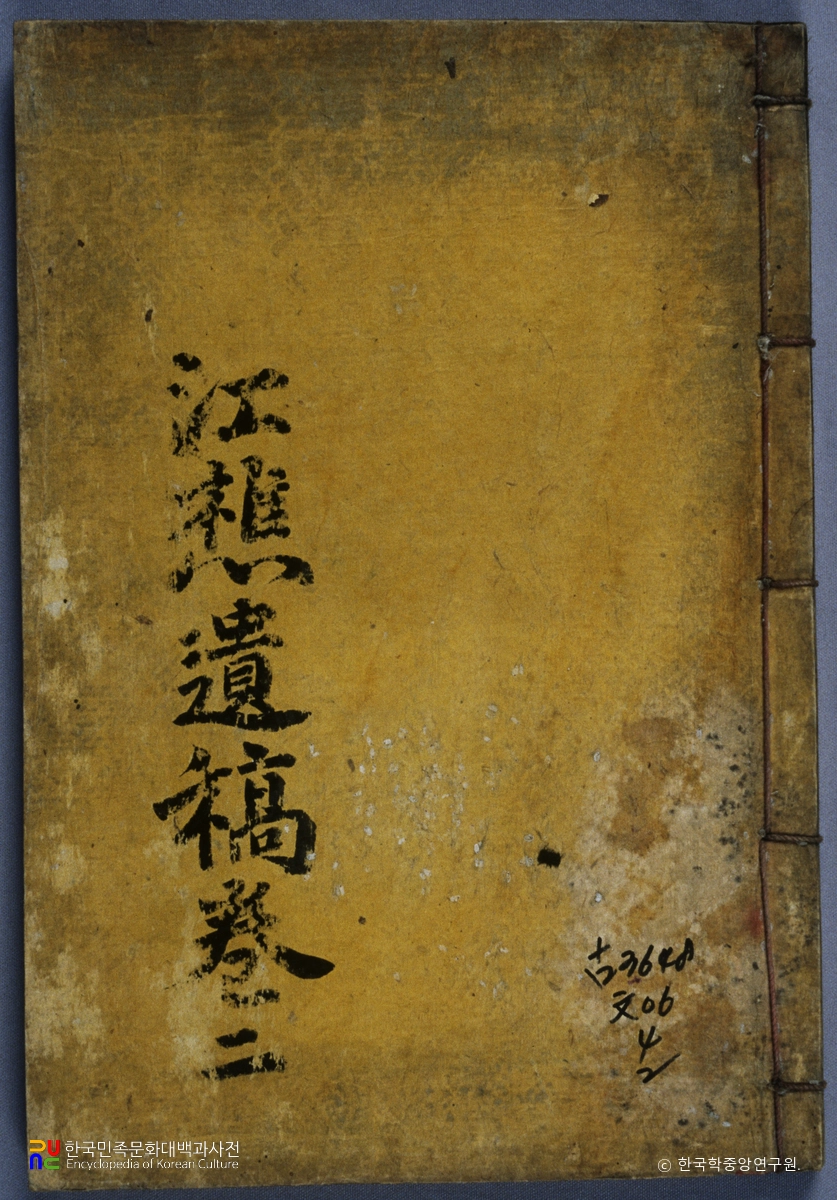 江樵遺稿卷二
古3648
文06
4
2
한국민족문화대백과사전
Encyclopedia of Korean Culture
© 한국학중앙연구원.